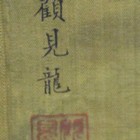 顧見龍